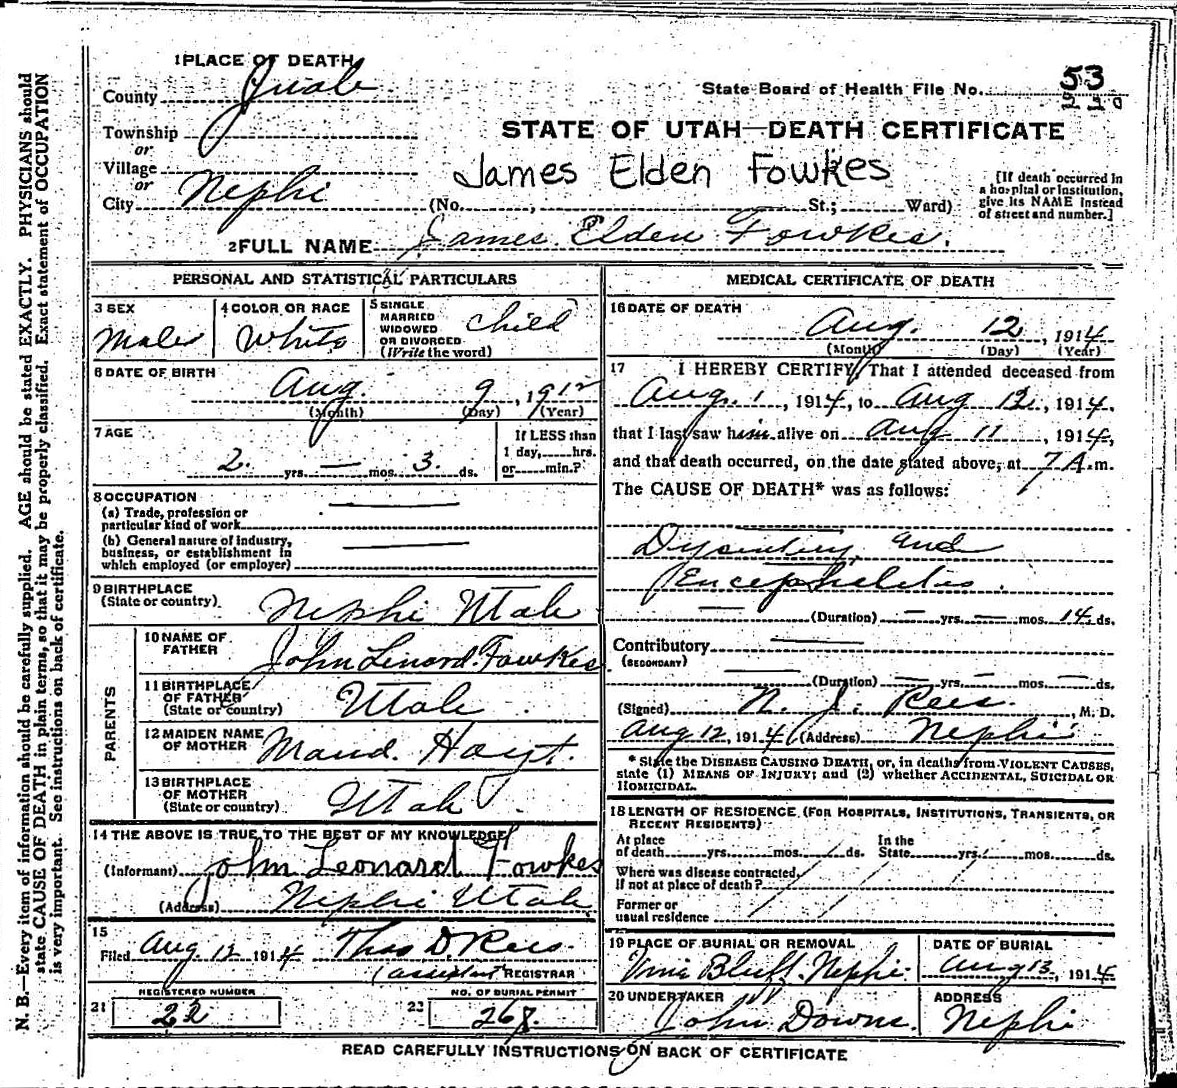 1 PLACE OF DEATH
County Juab
State Board of Health File No. 53
Township
or
Village
or
City Nephi
STATE OF UTAH—DEATH CERTIFICATE
James Elden Fowkes
(No. , St.; Ward)
[If death occurred in
a hospital or institution,
give its NAME instead
of street and number.]
2 FULL NAME James Elden Fowkes.
PERSONAL AND STATISTICAL PARTICULARS
3 SEX
Male
4 COLOR OR RACE
White
5 SINGLE
MARRIED
WIDOWED
OR DIVORCED
(Write the word)
Child
6 DATE OF BIRTH
Aug. 9, 1912
(Month) (Day) (Year)
7 AGE
2. yrs. — mos. 3. ds.
If LESS than
1 day, hrs.
or min.?
8 OCCUPATION
(a) Trade, profession or
particular kind of work
(b) General nature of industry,
business, or establishment in
which employed (or employer)
9 BIRTHPLACE
(State or country) Nephi Utah
PARENTS
10 NAME OF
FATHER John Linord Fowkes
11 BIRTHPLACE
OF FATHER
(State or country) Utah
12 MAIDEN NAME
OF MOTHER Maud. Hoyt.
13 BIRTHPLACE
OF MOTHER
(State or country) Utah
14 THE ABOVE IS TRUE TO THE BEST OF MY KNOWLEDGE
(Informant) John Leonard Fowkes
(Address) Nephi Utah
15
Filed Aug. 12 1914 Thos D Rees.
(assistant REGISTRAR
REGISTERED NUMBER
21 22
NO. OF BURIAL PERMIT
22 267.
MEDICAL CERTIFICATE OF DEATH
16 DATE OF DEATH
Aug. 12, 1914
(Month) (Day) (Year)
17 I HEREBY CERTIFY, That I attended deceased from
Aug. 1, 1914, to Aug 12, 1914,
that I last saw him alive on Aug 11, 1914,
and that death occurred, on the date stated above, at 7 A.m.
The CAUSE OF DEATH* was as follows:
Dysentery and
Encephaletis.
(Duration) — yrs. — mos. 14 ds.
Contributory
(SECONDARY)
(Duration) — yrs. — mos. — ds.
(Signed) N. J. Rees. , M. D.
Aug 12, 1914 (Address) Nephi
* State the DISEASE CAUSING DEATH, or, in deaths from VIOLENT CAUSES,
state (1) MEANS OF INJURY; and (2) whether ACCIDENTAL, SUICIDAL OR
HOMICIDAL.
18 LENGTH OF RESIDENCE (FOR HOSPITALS, INSTITUTIONS, TRANSIENTS, OR
RECENT RESIDENTS)
At place
of death yrs. mos. ds.
In the
State yrs. mos. ds.
Where was disease contracted,
if not at place of death?
Former or
usual residence
19 PLACE OF BURIAL OR REMOVAL
Vine Bluff. Nephi.
DATE OF BURIAL
Aug 13, 1914
20 UNDERTAKER
John Downs.
ADDRESS
Nephi
READ CAREFULLY INSTRUCTIONS ON BACK OF CERTIFICATE
N. B.—Every item of information should be carefully supplied. AGE should be stated EXACTLY. PHYSICIANS should
state CAUSE OF DEATH in plain terms, so that it may be properly classified. Exact statement of OCCUPATION
is very important. See instructions on back of certificate.